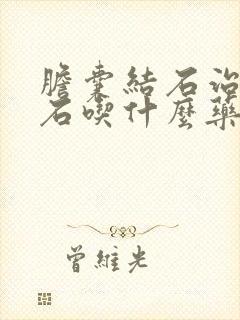 膽囊結石治
石喫什麼藥
曾維光